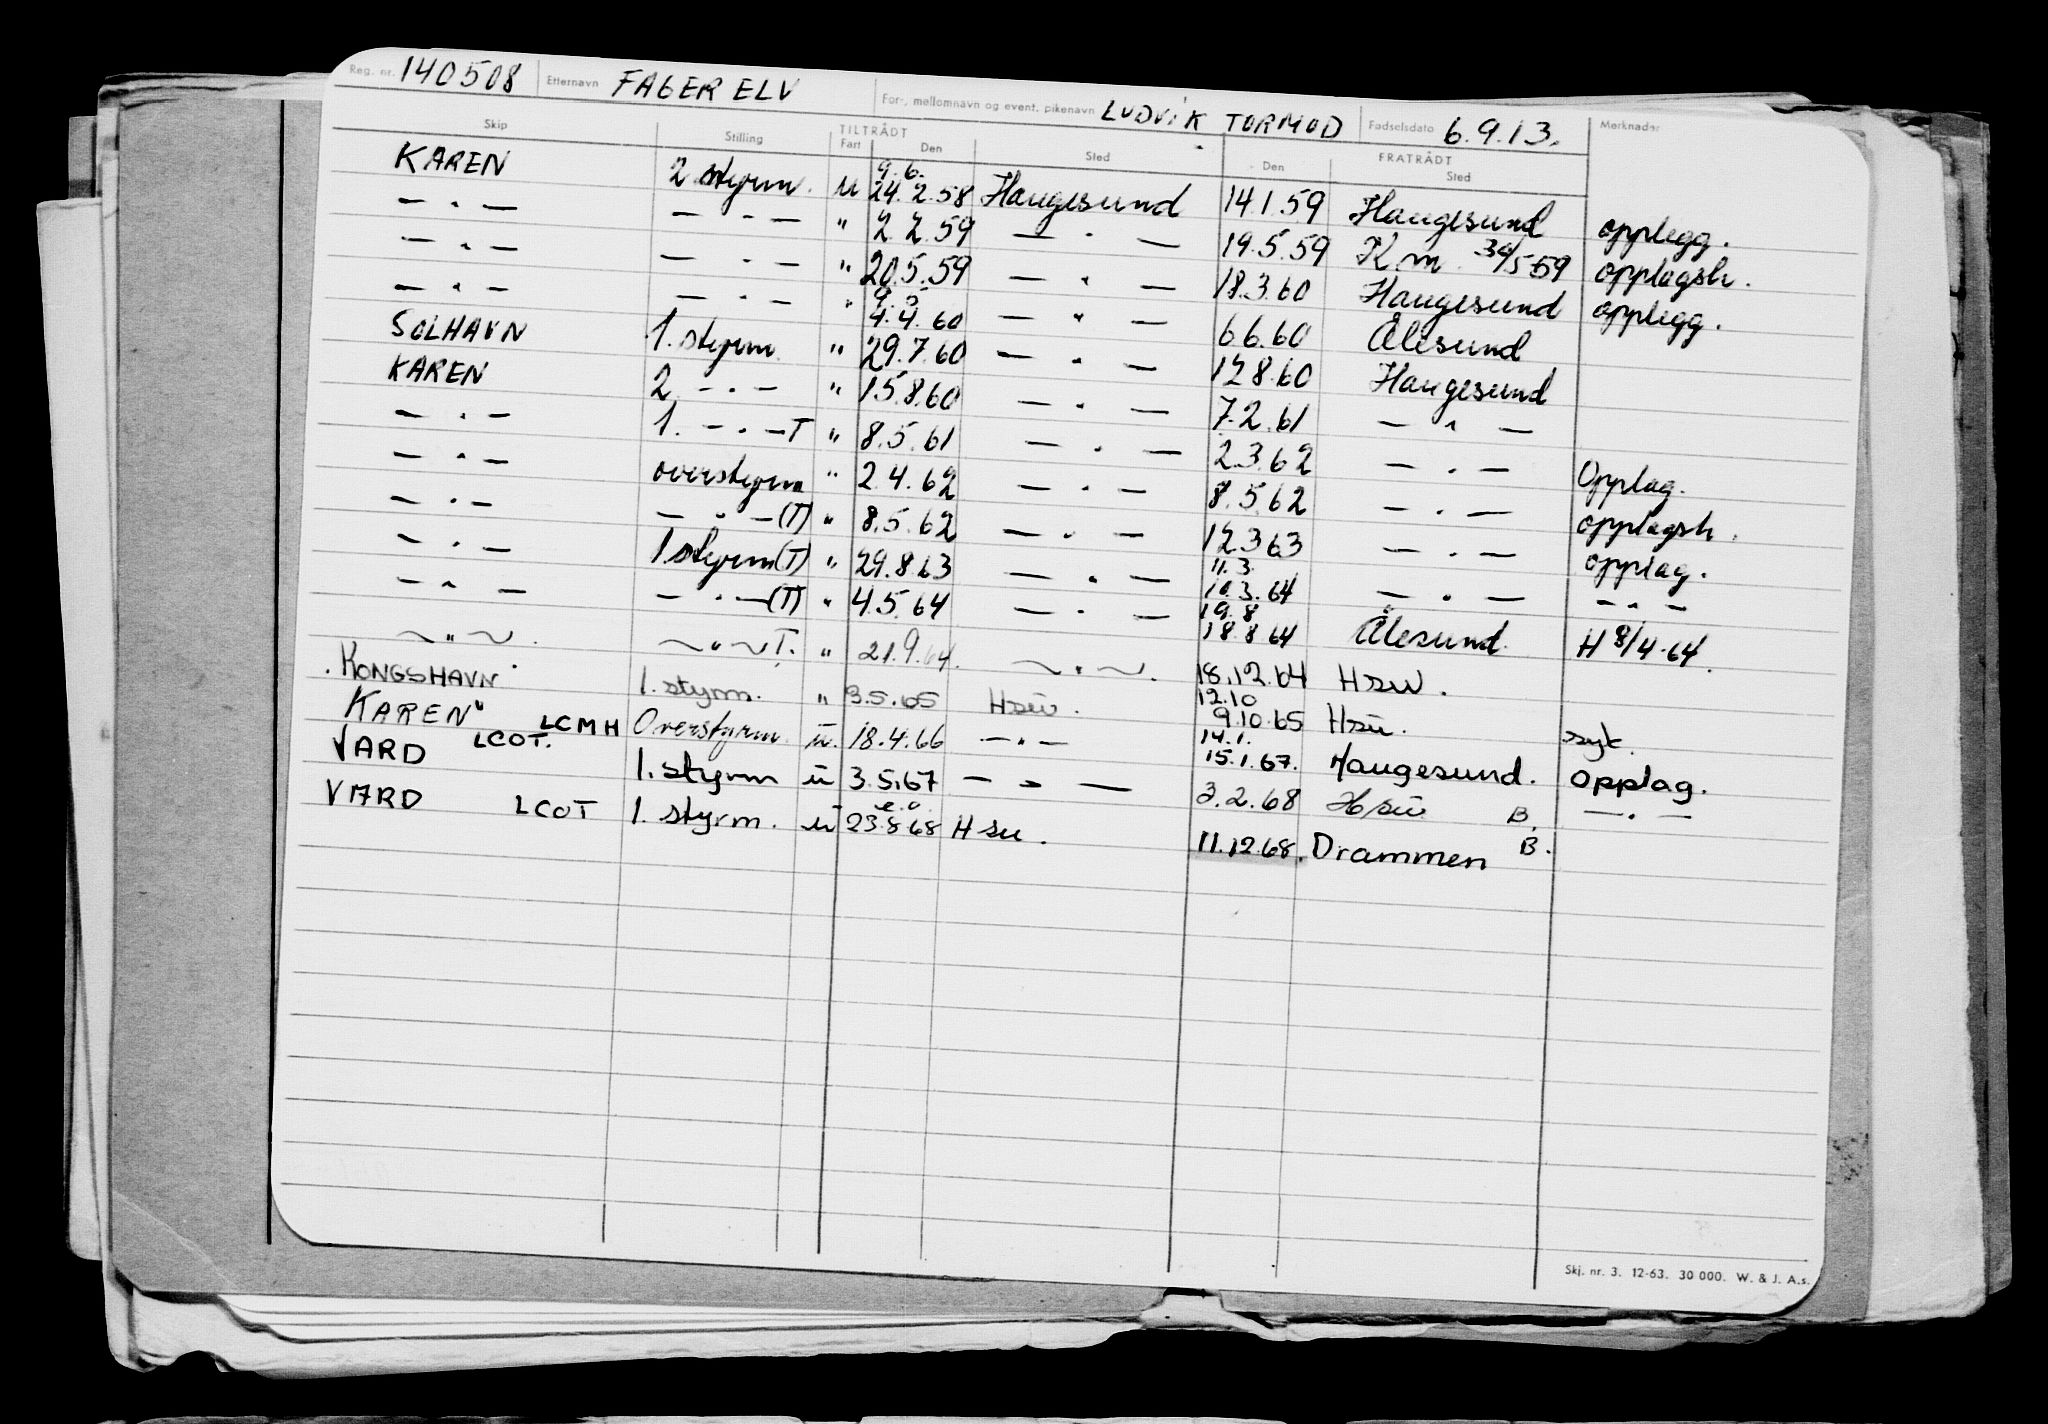 Reg. nr. 140508 Etternavn FAGERELV For-, mellomnavn og event. pikenavn LUDVIK TORMOD Fødselsdato 6.9.13. Merknader
Skip Stilling TILTRÅDT Fart Den Sted FRATRÅDT Den Sted
KAREN 2 styrm. u 9.6. 24.2.58 Haugesund 14.1.59 Haugesund opplegg.
— " — — " — " 2.2.59 — " — 19.5.59 K.m. 30/5-59 opplagsh.
— " — — " — " 20.5.59 — " — 18.3.60 Haugesund opplegg.
— " — — " — " 9.5 4.4.60 — " — 6.6.60 Ålesund
SOLHAVN 1. styrm. " 29.7.60 — " — 12.8.60 Haugesund
KAREN 2 — " — " 15.8.60 — " — 7.2.61 — " —
— " — 1. — " — T " 8.5.61 — " — 2.3.62 — " — Opplag.
— " — overstyrm " 2.4.62 — " — 8.5.62 — " — opplagsh.
— " — — " — (T) " 8.5.62 — " — 12.3.63 — " — opplag.
— " — 1 styrm (T) " 29.8.63 — " — 11.3. 10.3.64 — " — — " —
— " — — " — (T) " 4.5.64 — " — 19.8. 18.8.64 Ålesund. H 8/4-64.
— " — . — " — T. " 21.9.64. — " — . 18.12.64 Hsu.
"KONGSHAVN" 1. styrm. " 3.5.65 Hsu. 12.10 9.10.65 Hsu. syk.
KAREN" LCMH Overstyrm. u. 18.4.66 — " — 14.1. 15.1.67. Haugesund. opplag.
VARD LCOT. 1. styrm u 3.5.67 — " — 3.2.68 Hsu B. — " —
VARD LCOT 1. styrm. u 23.8.68 Hsu. 11.12.68. Drammen B.
Skj. nr. 3. 12-63. 30 000. W. & J. A.s.